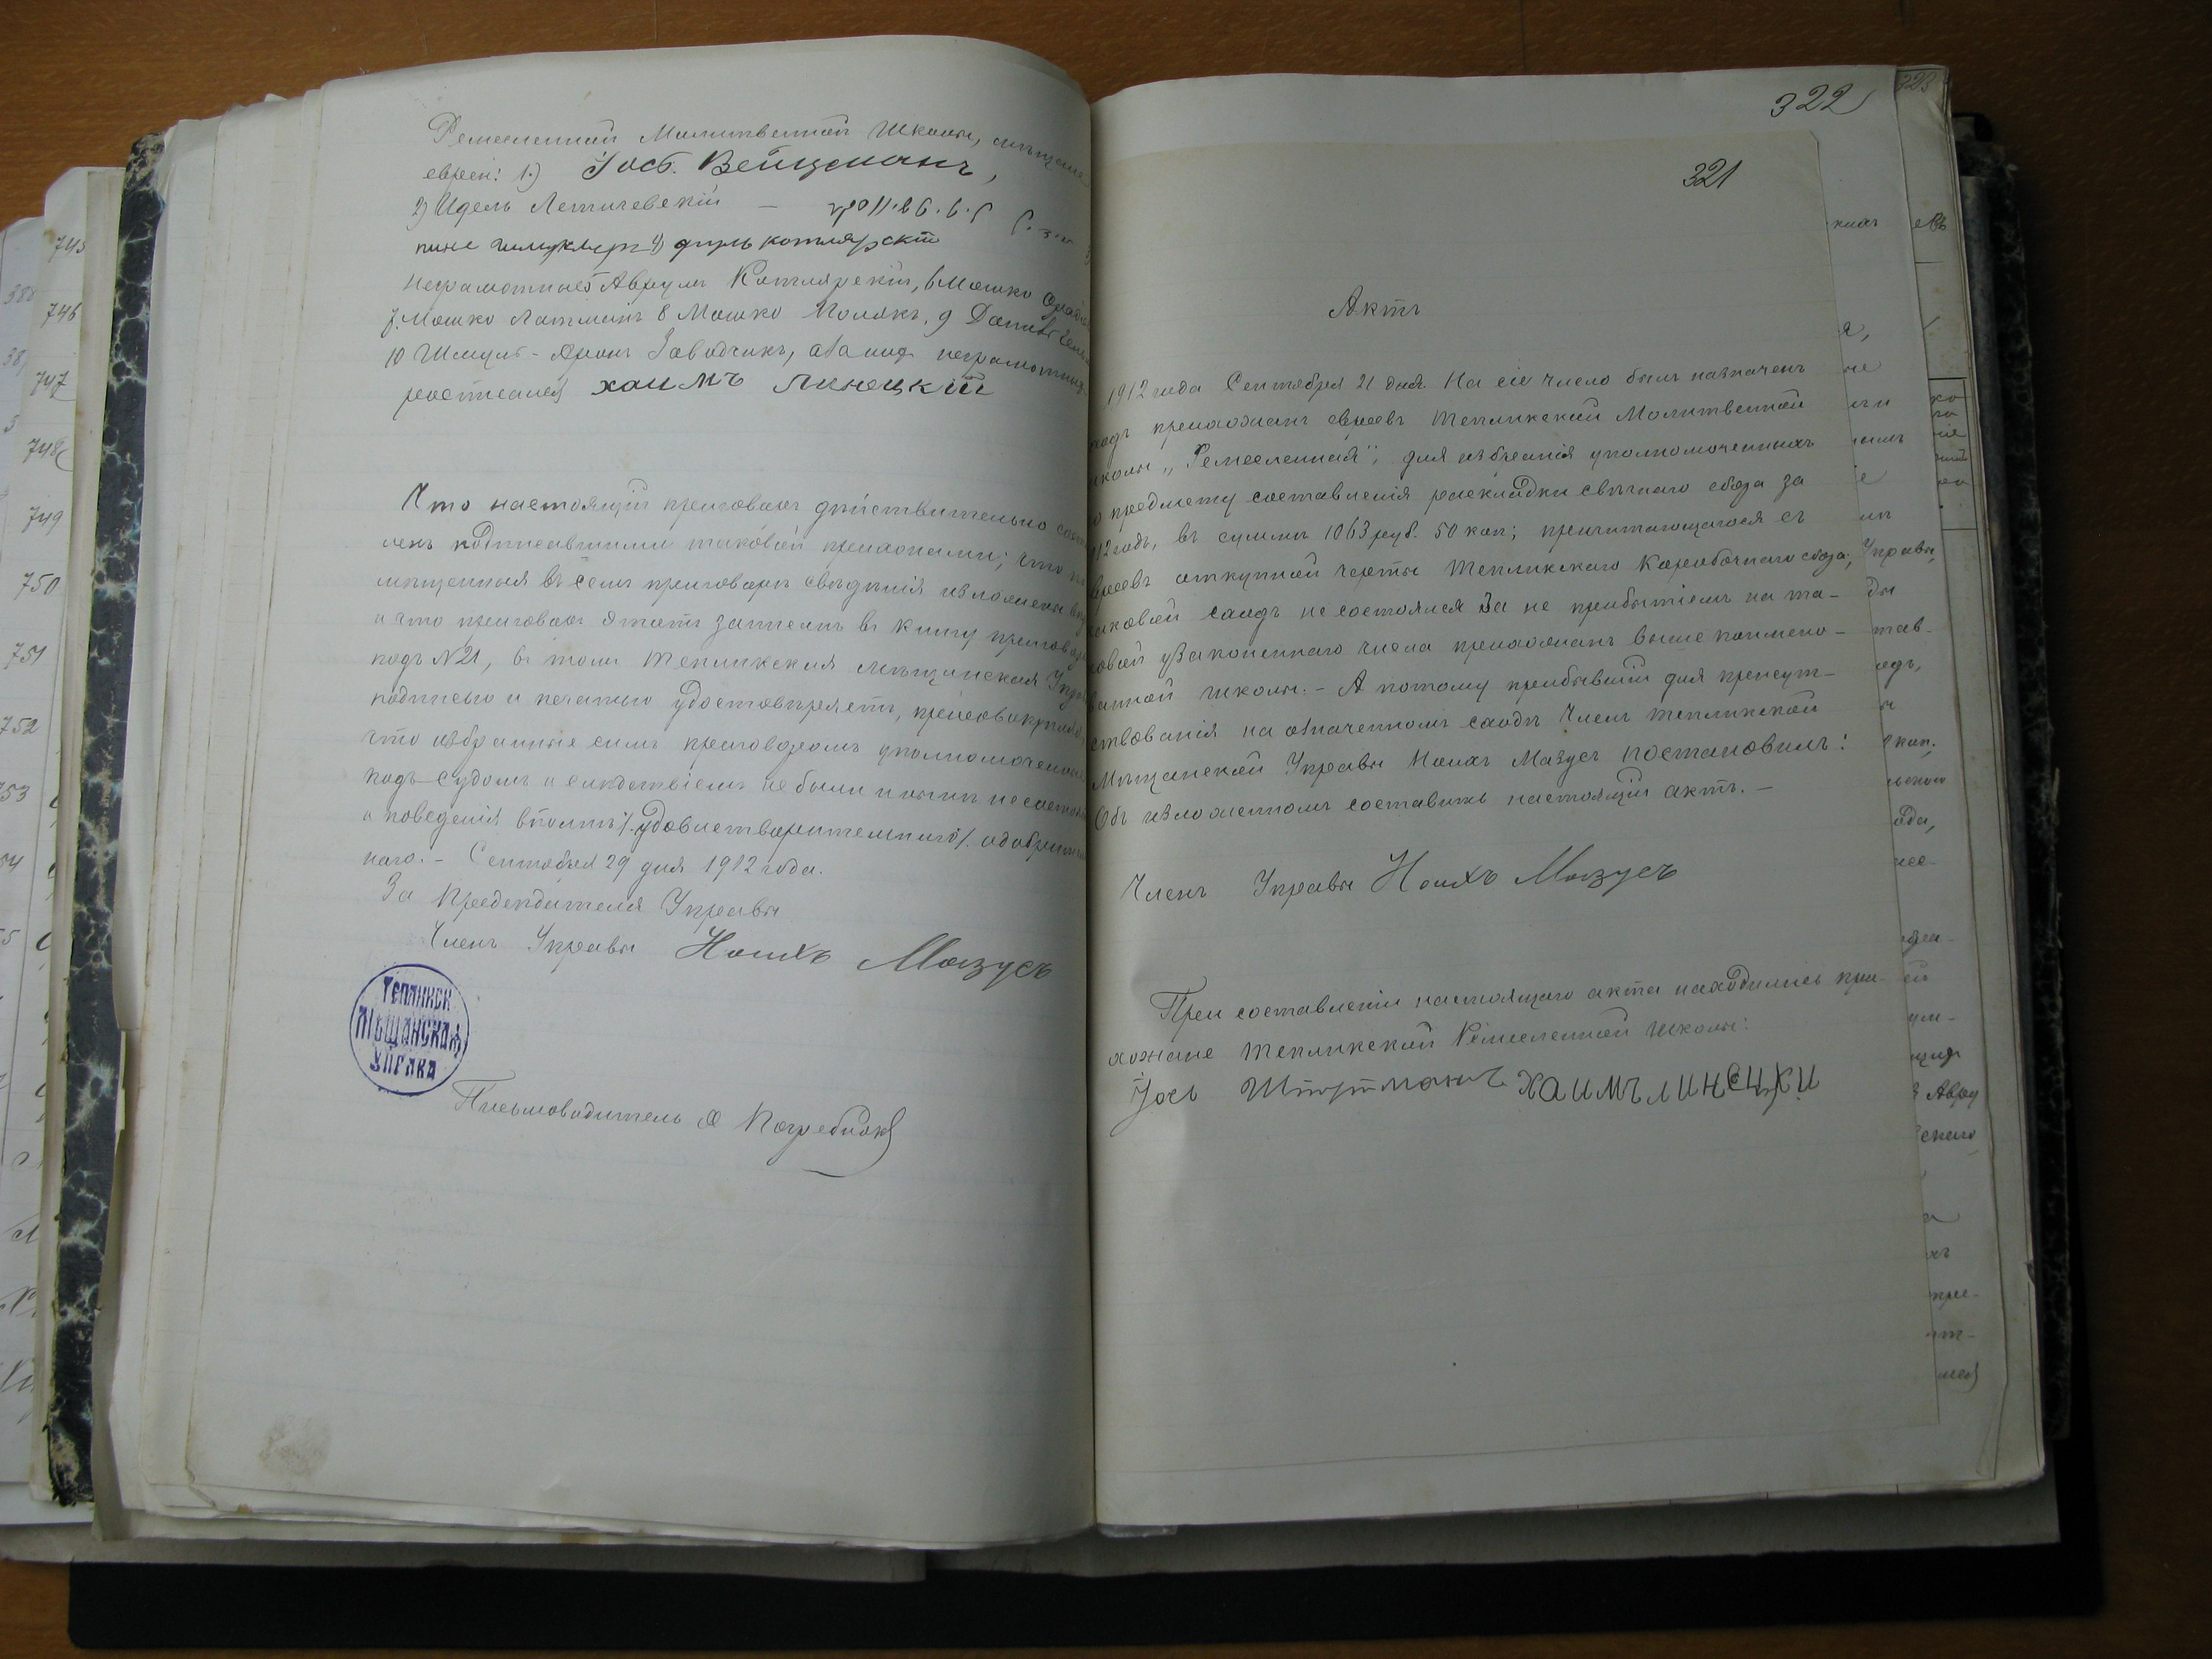 Ремесленной Молитвенной Школы, мѣщане
евреи: 1.) Іосъ. Вейцманъ,
2) Идель Летичевскій —
пине шмуклер 4) фуль котлярскій
неграмотные 5 Аврумъ Котлярскій, 6 Мошко
7. Мошко Латманъ 8 Мошко Полякъ, 9 Даніилъ
10 Шмуль-Аронъ Заводчикъ, а за нихъ неграмотныхъ
росписался хаимъ линецкій
Что настоящій приговоръ дѣйствительно
ленъ подписавшими таковой прихожанами; что
мѣщенныя въ семъ приговорѣ свѣдѣнія изложены
и что приговоръ этотъ записанъ въ книгу
подъ №21, въ томъ Тепликская мѣщанская
подписью и печатью удостовѣряетъ, присовокупляя,
что избранные симъ приговоромъ уполномоченные
подъ судомъ и слѣдствіемъ не были и нынѣ не состоятъ
и поведенія вполнѣ /.удовлетворительнаго/. одобритель
наго. — Сентября 29 дня 1912 года.
За Предсѣдателя Управы
Членъ Управы Ноихъ Мазусъ
ТЕПЛИКСК
МѢЩАНСКАЯ
УПРАВА
Письмоводитель Погребняк
322
321
Актъ
1912 года Сентября 21 дня. На сіе число былъ назначенъ
ходъ прихожанъ евреевъ Тепликской Молитвенной
школы „Ремесленная", для избранія уполномоченныхъ
о предмету составленія раскладки свѣчнаго сбора за
12 годъ, въ суммѣ 1063 руб. 50 коп; причитающагося съ
вреевъ откупной черты Тепликскаго Коробочнаго сбора;
аковой сходъ не состоялся за не прибытіемъ на та-
ковой узаконеннаго числа прихожанъ выше поимено-
ванной школы. — А потому прибывшій для присут-
ствованія на означенномъ сходѣ Членъ Тепликской
Мѣщанской Управы Ноихъ Мазусъ постановилъ:
Объ изложенномъ составить настоящій актъ. —
Членъ Управы Ноихъ Мазусъ
При составленіи настоящаго акта находились при-
хожане Тепликской Ремесленной Школы:
Іось Штортманъ ХАИМЪ ЛИНЕЦКИ
745
746
747
748
749
750
751
752
323